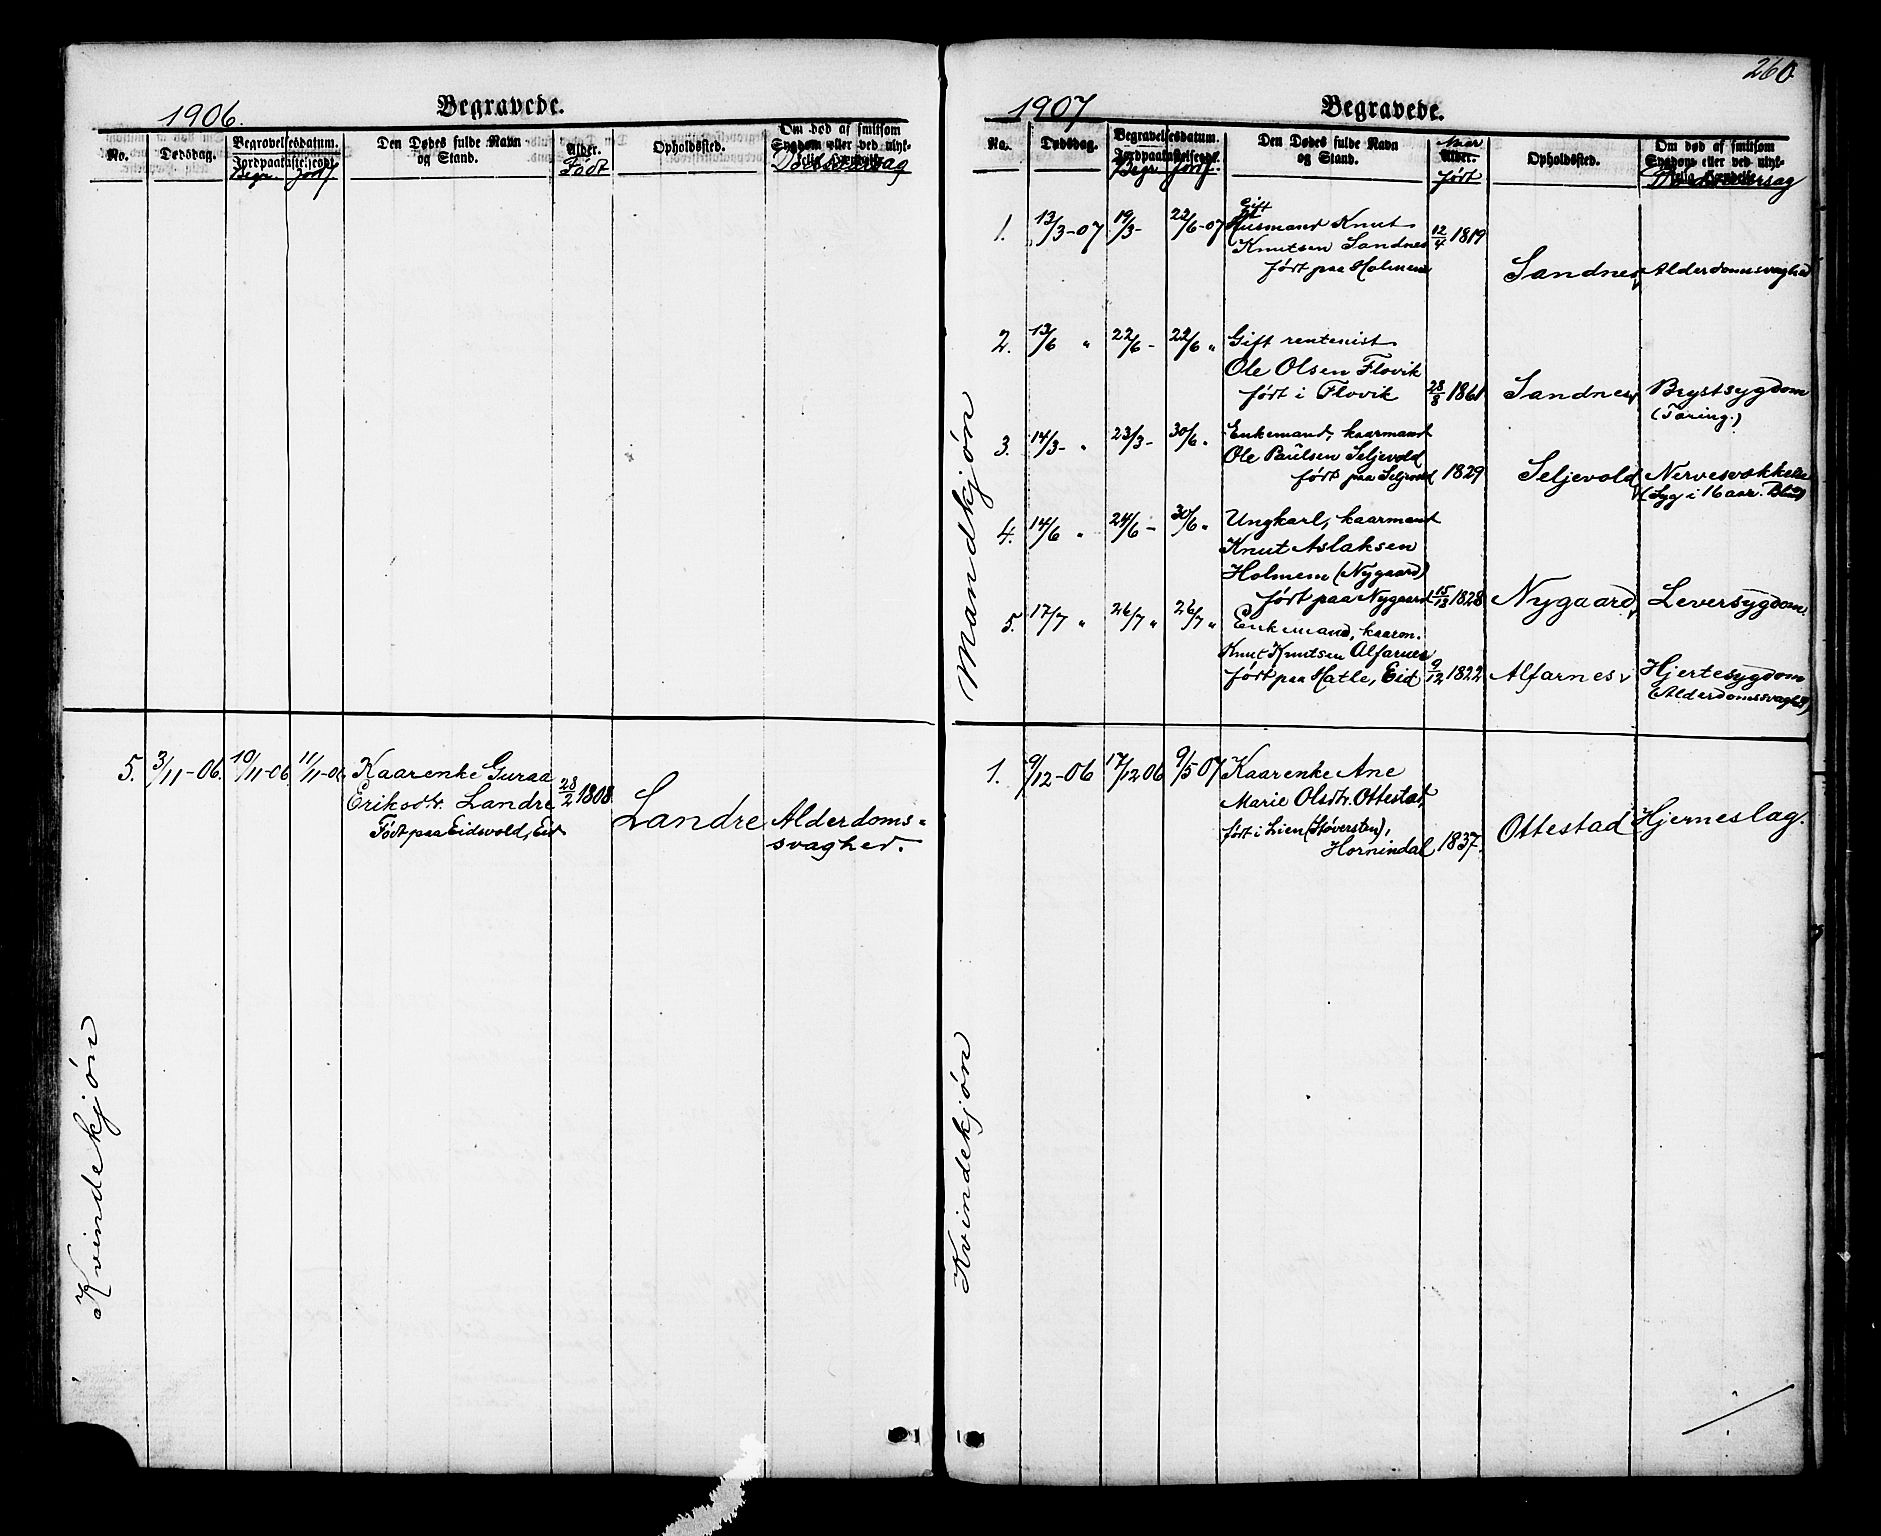 1906.
Begravede.
No.
Dødsdag.
Begravelsesdatum.
Jordpaakastelsesdt.
Begr. Jordf.
Den Dødes fulde Navn
og Stand.
Alder.
Født
Opholdssted.
Om død af smitsom
Sygdom eller ved ulyk-
kelig Hændelse.
Dødsaarsag
Kvindekjøn
5. 3/11-06. 10/11-06. 11/11-06. Kaarenke Guraa
Eriksdtr. Landre 28/2 1808. Landre Alderdoms-
Født paa Eidsvold, Eid
svaghed.
260.
1907
Begravede.
No.
Dødsdag.
Begravelsesdatum.
Jordpaakastelsesdt.
Begr. Jordf.
Den Dødes fulde Navn
og Stand.
Aar
Alder.
født
Opholdssted.
Om død af smitsom
Sygdom eller ved ulyk-
kelig Hændelse.
Dødsaarsag
Mandkjøn
Gift
1. 13/3-07 19/3- 22/6-07 Husmand Knut
Knutsen Sandnes 12/4 1819
født paa Holmem Sandnes Alderdomssvaghed
2. 13/6 " 22/6- 22/6 " Gift rentenist
Ole Olsen Flovik
født i Flovik 28/8 1861 Sandnes Brystsygdom
(Tæring.)
3. 14/3- " 23/3- 30/6 " Enkemand, kaarmand
Ole Paulsen Seljevold
født paa Seljevold 1829 Seljevold Nervesvækkelse
(Syg i 16 aar. Blind)
4. 14/6 " 24/6- 30/6 " Ungkarl, kaarmand
Knut Aslaksen
Holmem (Nygaard)
født paa Nygaard 1828 Nygaard Leversygdom.
5. 17/7 " 26/7 " 26/7 " Enkemand, kaarm.
Knut Knutsen Alfarnes
født paa Hatle, Eid 9/12 1822 Alfarnes Hjertesygdom
(Alderdomssvaghed)
Kvindekjøn
1. 9/12-06 17/12 06 9/5 07 Kaarenke Ane
Marie Olsdtr. Ottestad,
født i Lien (Støversten),
Hornindal 1837. Ottestad Hjerneslag.